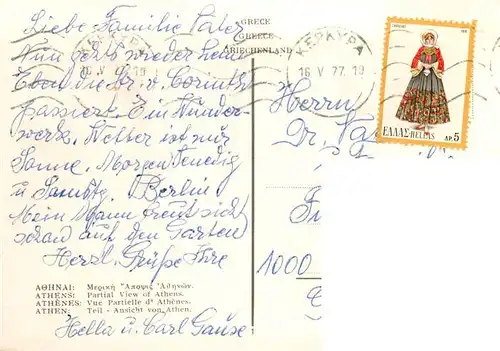 Liebe Familie Vater
Nun geht's wieder heim
Eben die Str. v. Corinth
passiert. Ein Wunder-
werk. Wetter ist nur
Sonne. Morgen Venedig
u. Samstg. Berlin
Mein Mann freut sich
schon auf den Garten
Herzl. Grüße Ihre
ΑΘΗΝΑΙ: Μερικὴ Ἄποψις Ἀθηνῶν.
ATHENS: Partial View of Athens.
ATHÈNES: Vue Partielle d' Athènes.
ATHEN: Teil - Ansicht von Athen.
Hella u. Carl Gause
GRECE
GREECE
GRIECHENLAND
ΚΕΡΚΥΡΑ
16 V 77 19
ΚΕΡΚΥΡΑ
16 V 77 19
ΕΛΛΑΣ-HELLAS ΔΡ. 5
Herrn
Dr.
1000